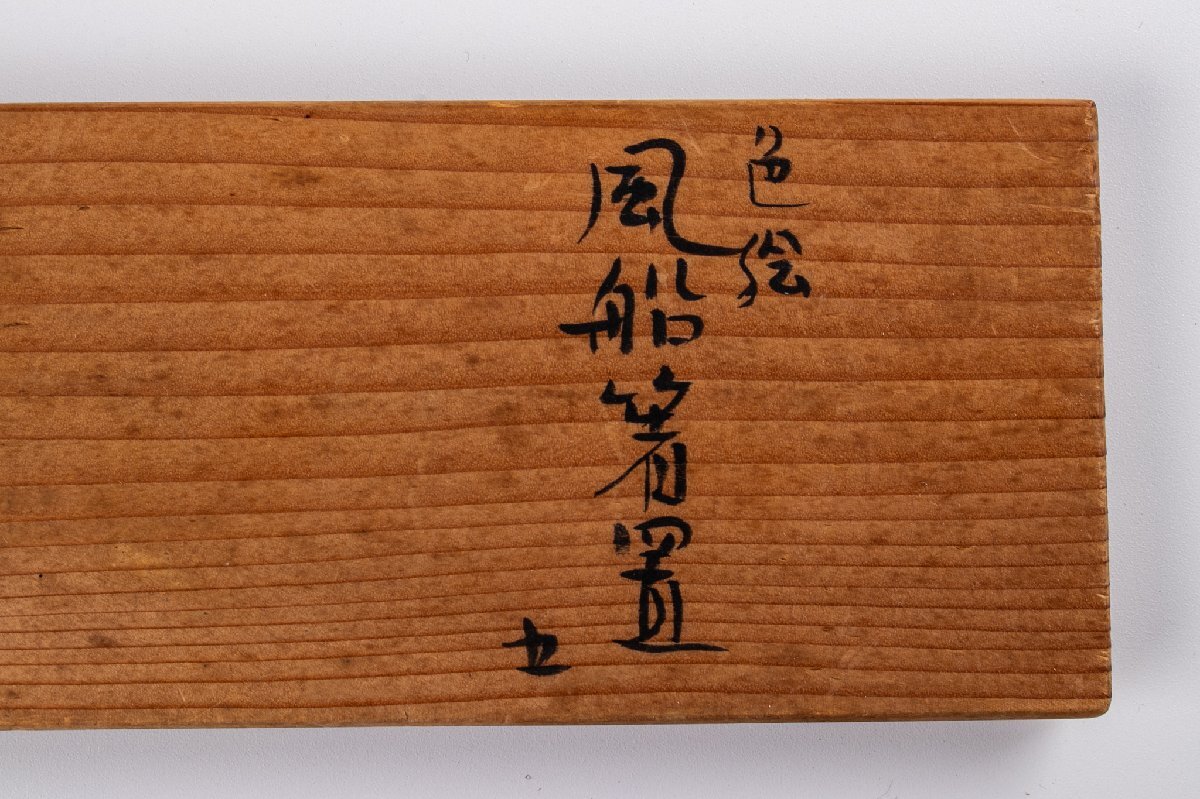 色絵
風船箸置
五